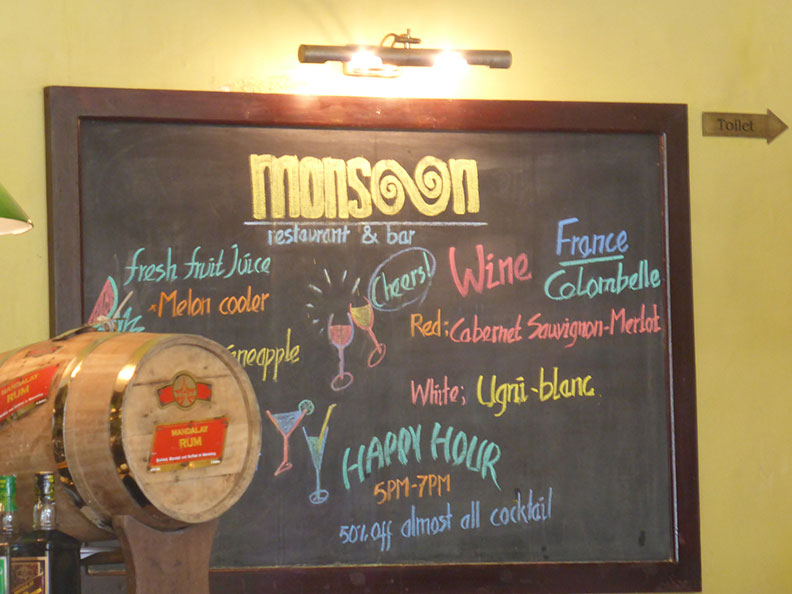 monsoon
restaurant & bar
Toilet
fresh fruit Juice
Melon cooler
Cheers!
Wine
France
Colombelle
Red; Cabernet Sauvignon-Merlot
White; Ugni-blanc
HAPPY HOUR
5PM-7PM
50% off almost all cocktail
MANDALAY
RUM
MANDALAY
RUM